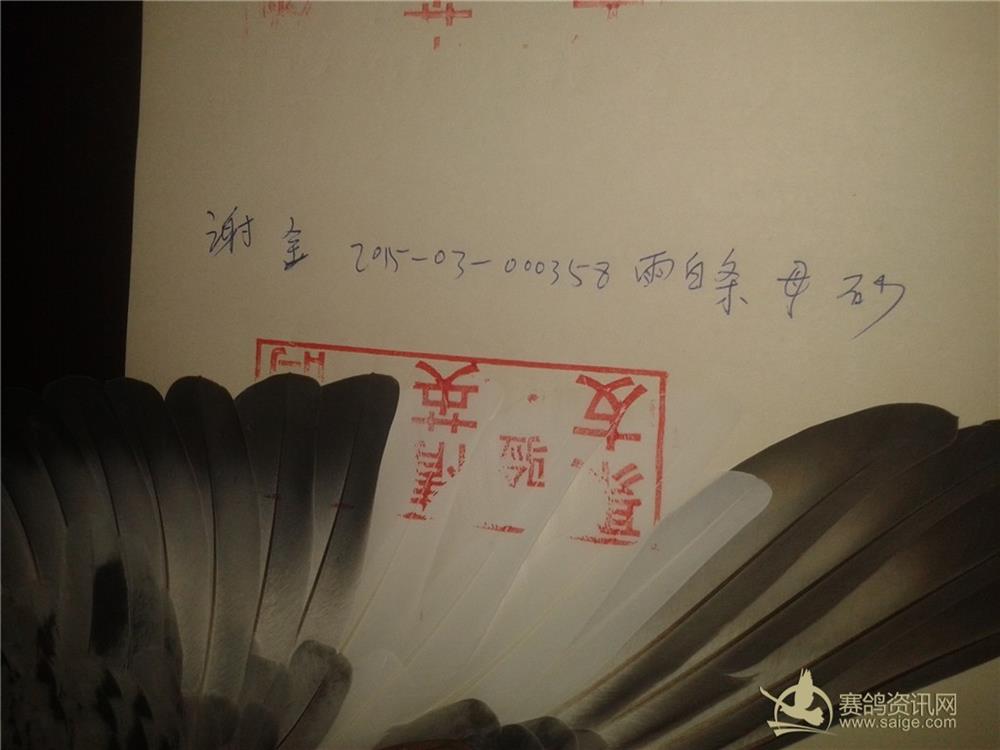 谢金 2015-03-000358 雨白条 母 砂
精英
验
友
赛鸽资讯网
www.saige.com